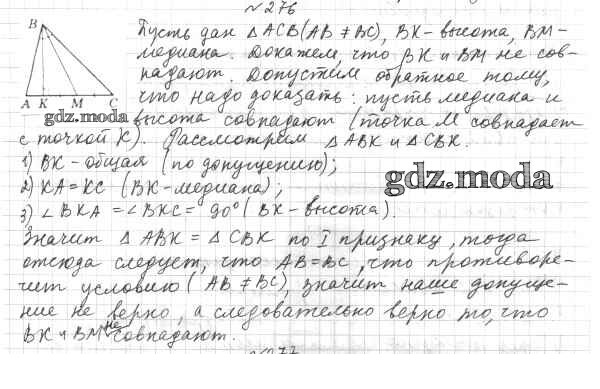 №276
B
Пусть дан △ ACB (AB ≠ BC), BK-высота, BM-
медиана. Докажем, что BK и BM не сов-
падают. Допустим обратное тому,
A K M C
что надо доказать: пусть медиана и
gdz.moda
высота совпадают (точка M совпадает
с точкой K). Рассмотрим △ ABK и △ CBK.
1) BK - общая (по допущению);
gdz.moda
2) KA = KC (BK-медиана);
3) ∠ BKA = ∠ BKC = 90° (BK - высота).
Значит △ ABK = △ CBK по I признаку, тогда
отсюда следует, что AB = BC, что противоре-
чит условию (AB ≠ BC), значит наше допуще-
ние не верно, а следовательно верно то, что
BK и BM не совпадают.
№277